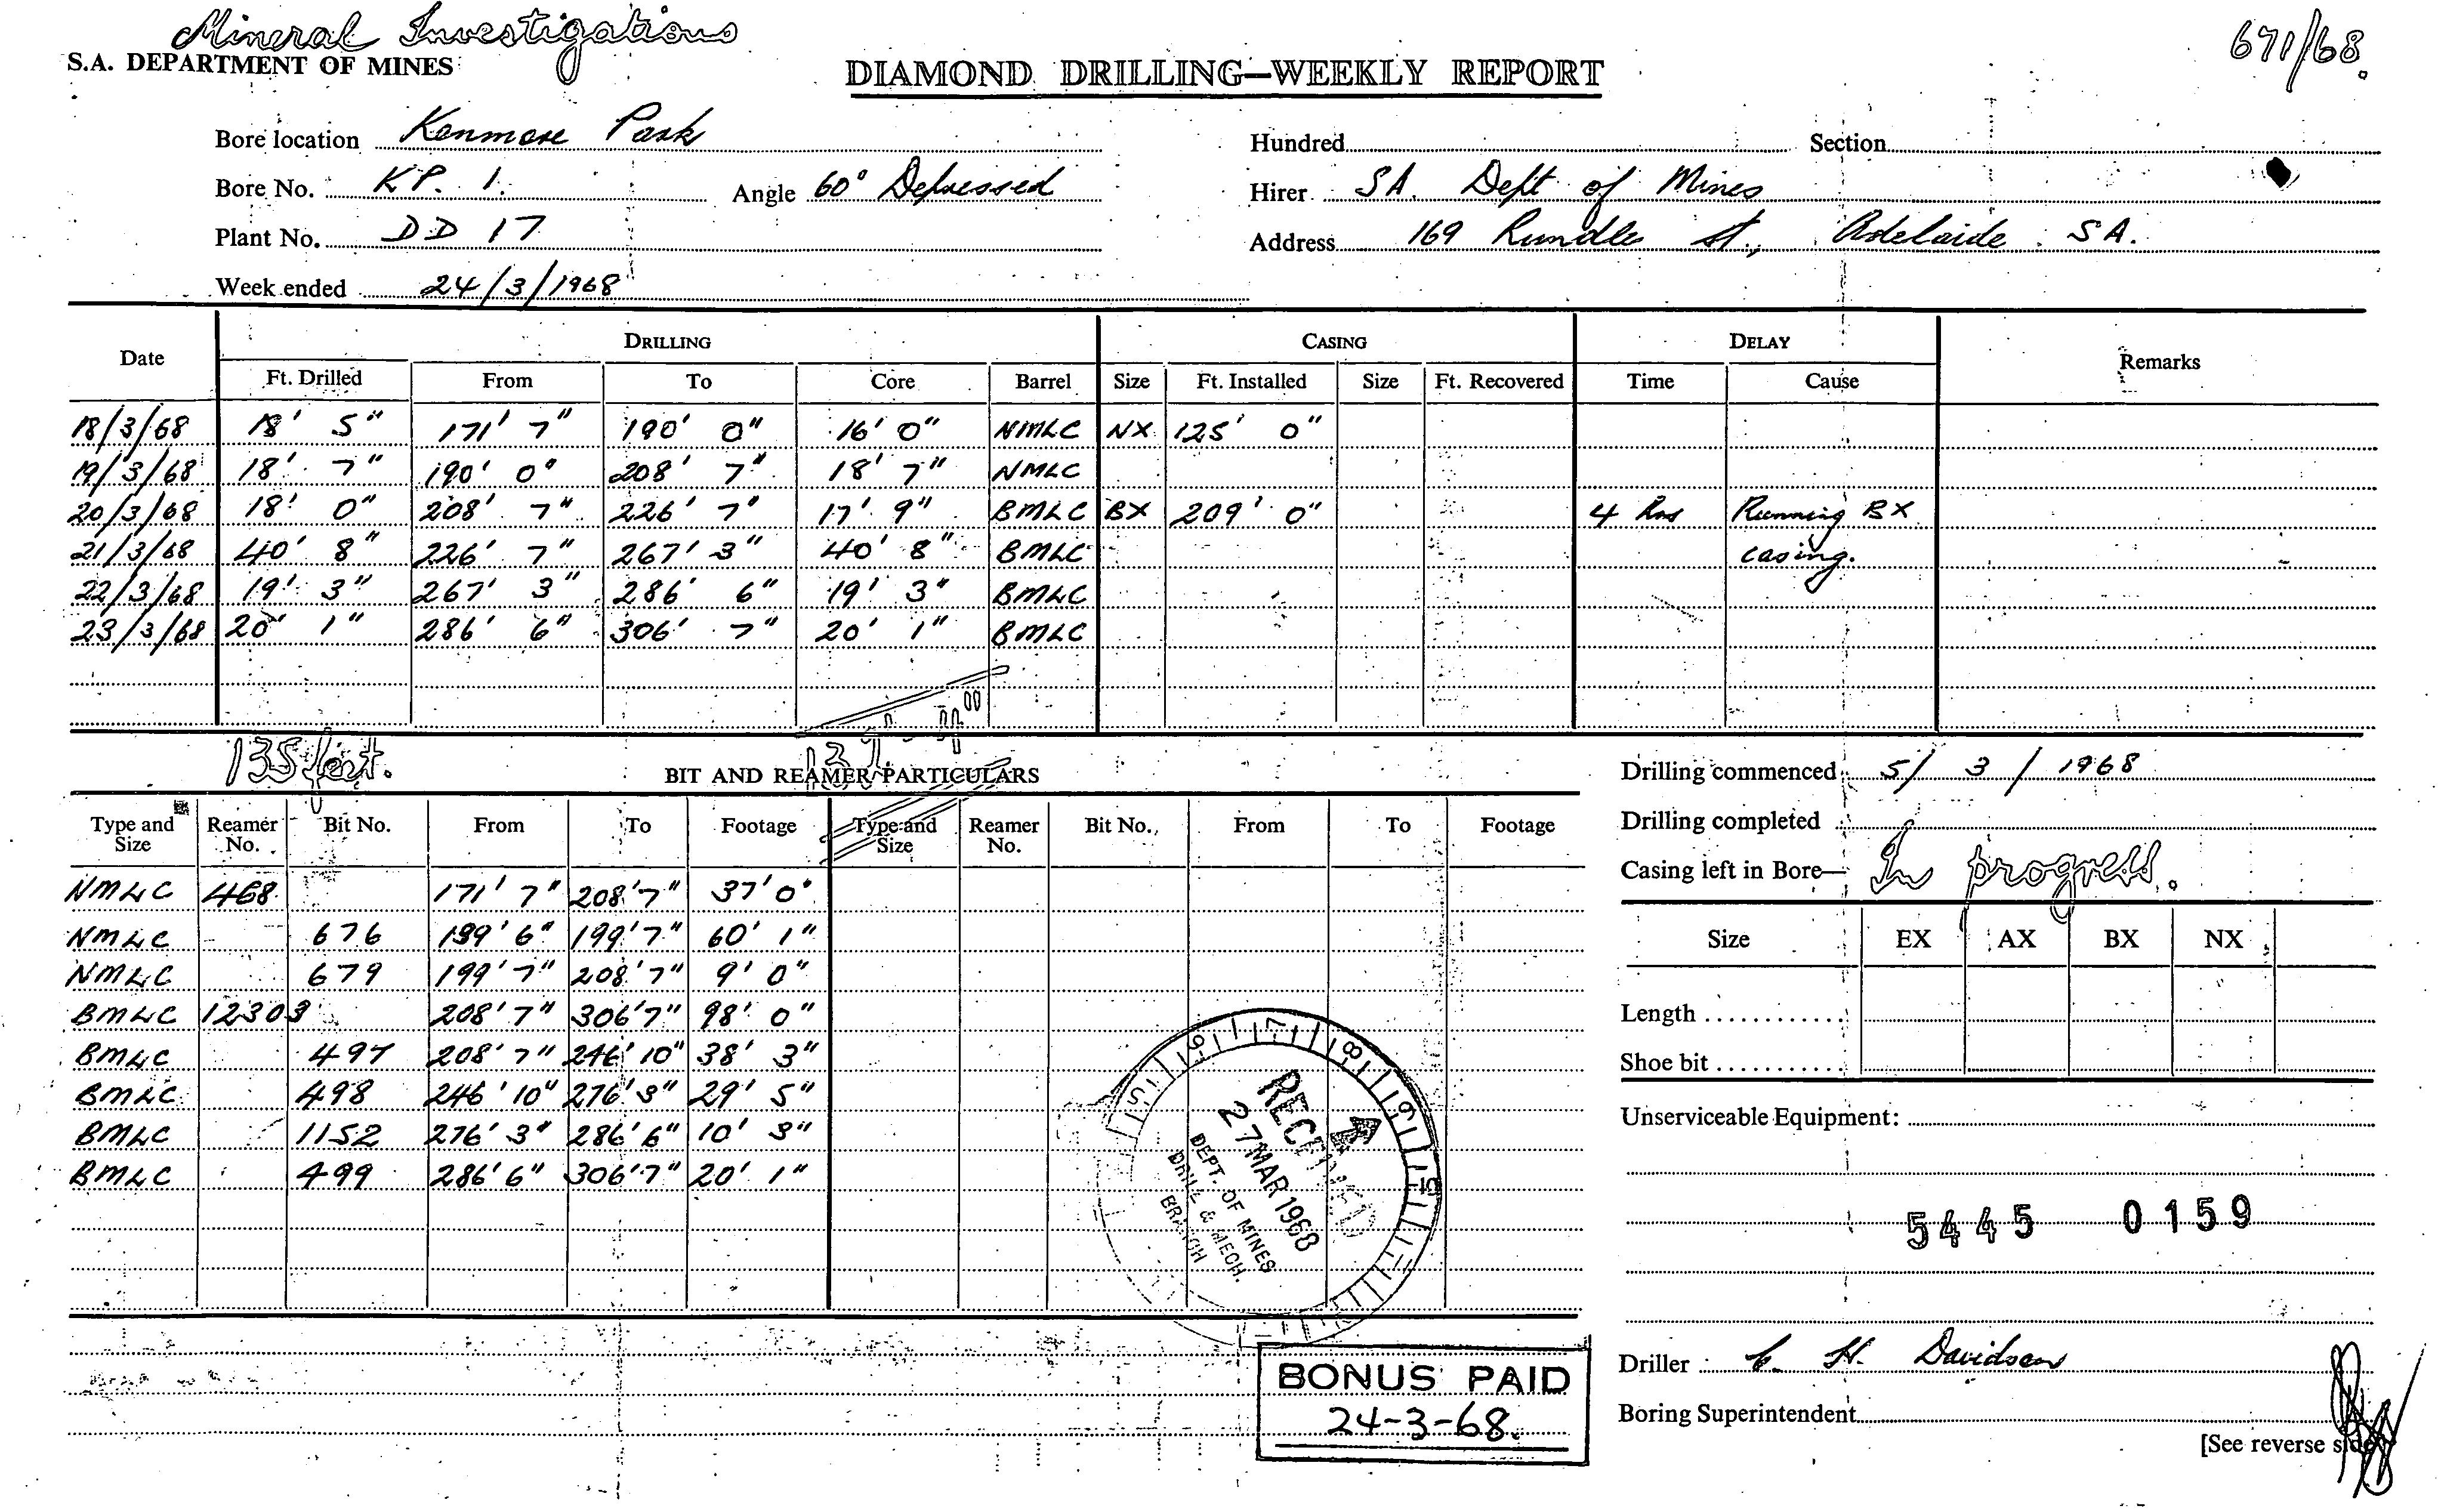 Mineral Investigations
671/68.
S.A. DEPARTMENT OF MINES
DIAMOND DRILLING—WEEKLY REPORT
Bore location Kenmore Park Hundred Section
Bore No. K.P. 1. Angle 60° Depressed Hirer S.A. Dept of Mines
Plant No. DD 17 Address 169 Rundle St., Adelaide S.A.
Week ended 24/3/1968
Date DRILLING CASING DELAY Remarks
Ft. Drilled From To Core Barrel Size Ft. Installed Size Ft. Recovered Time Cause
18/3/68 18' 5" 171' 7" 190' 0" 16' 0" NMLC NX 125' 0"
19/3/68 18' 7" 190' 0" 208' 7" 18' 7" NMLC
20/3/68 18' 0" 208' 7" 226' 7" 17' 9" BMLC BX 209' 0" 4 hrs Running BX
21/3/68 40' 8" 226' 7" 267' 3" 40' 8" BMLC casing.
22/3/68 19' 3" 267' 3" 286' 6" 19' 3" BMLC
23/3/68 20' 1" 286' 6" 306' 7" 20' 1" BMLC
135 feet.
BIT AND REAMER PARTICULARS Drilling commenced 5/3/1968
Type and Size Reamer No. Bit No. From To Footage Type and Size Reamer No. Bit No. From To Footage
Drilling completed
Casing left in Bore— In progress.
NMLC 468 171' 7" 208' 7" 37' 0"
NMLC 676 139' 6" 199' 7" 60' 1"
Size EX AX BX NX
NMLC 679 199' 7" 208' 7" 9' 0"
BMLC 12303 208' 7" 306' 7" 98' 0"
Length
BMLC 497 208' 7" 246' 10" 38' 3"
Shoe bit
BMLC 498 246' 10" 276' 3" 29' 5"
BMLC 1152 276' 3" 286' 6" 10' 3"
Unserviceable Equipment:
BMLC 499 286' 6" 306' 7" 20' 1"
RECEIVED
27 MAR 1968
DEPT. OF MINES
DRILL & MECH.
BRANCH
5445 0159
BONUS PAID
24-3-68.
Driller C. H. Davidson
Boring Superintendent
[See reverse side